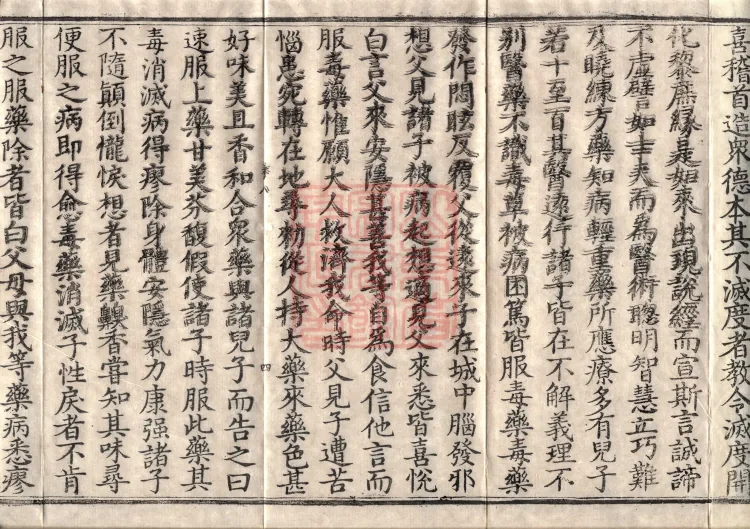 喜稽首造衆德本其不滅度者教令滅度開
化黎庶緣是如來出現說經而宣斯言誠諦
不虛譬如士夫而爲醫術聰明智慧工巧難
及曉練方藥知病輕重藥所應療多有兒子
若十至百其醫遠行諸子皆在不解義理不
別醫藥不識毒草被病困篤皆服毒藥毒藥
發作悶眩反覆父從遠來子在城中腦發邪
想父見諸子被病起想適見父來悉皆喜悅
白言父來安隱甚善我等自爲食信他言而
服毒藥惟願大人救濟我命時父見子遭苦
惱患宛轉在地尋勑從人持大藥來藥色甚
四
好味美且香和合衆藥與諸兒子而告之曰
速服上藥甘美芬馥假使諸子時服此藥其
毒消滅病得瘳除身體安隱氣力康强諸子
不隨顚倒悷想者見藥齅香嘗知其味尋
便服之病即得愈毒藥消滅子性戾者不肯
服之服藥除者皆白父母與我等藥病悉瘳